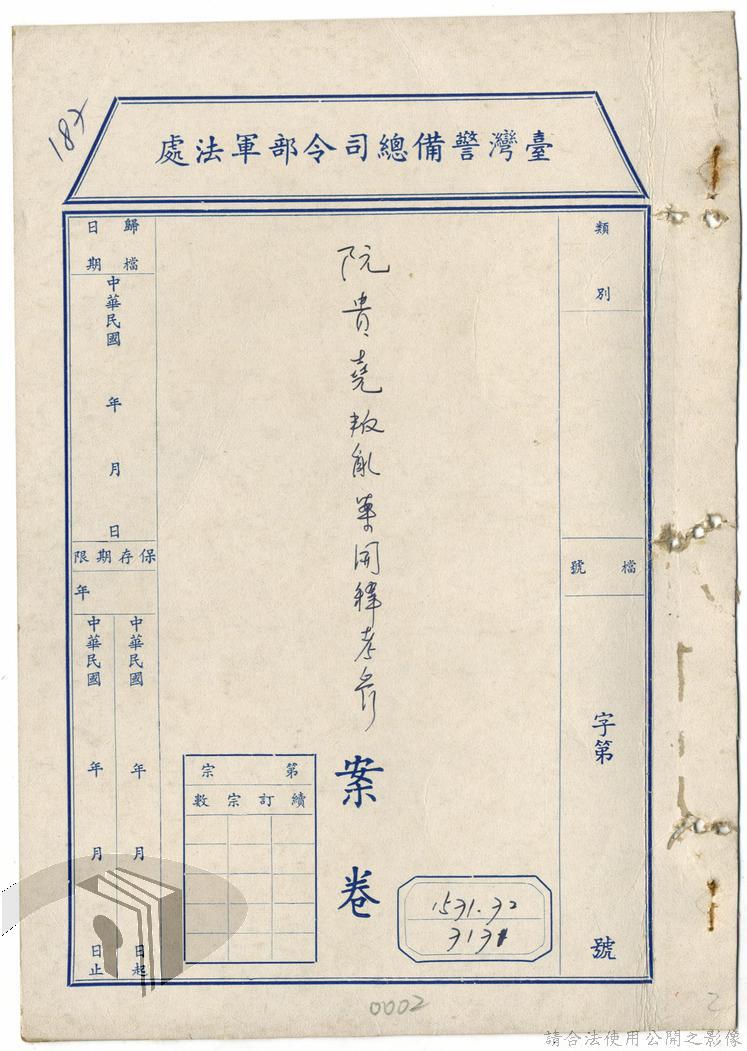 187
臺灣警備總司令部軍法處
類別
檔號
字第
號
阮貴堯叛亂案開釋考參
案卷
第宗
續訂宗數
1531.32
3131
歸檔日期
中華民國
年
月
日
保存期限
年
中華民國
年
月
日起
中華民國
年
月
日止
0002
2
請合法使用公開之影像